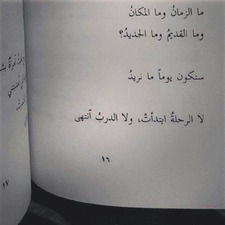 ما الزمانُ وما المكانُ
وما القديمُ وما الجديدُ؟
سنكون يوماً ما نريدُ
لا الرحلةُ ابتدأتْ، ولا الدربُ آنتهى
١٦
١٧